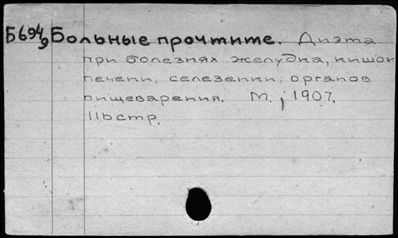 Б694₉ Больные прочтите. Диэта
при болезнях желудка, кишок
печени, селезенки, органов
пищеварения. М., 1907.
116стр.